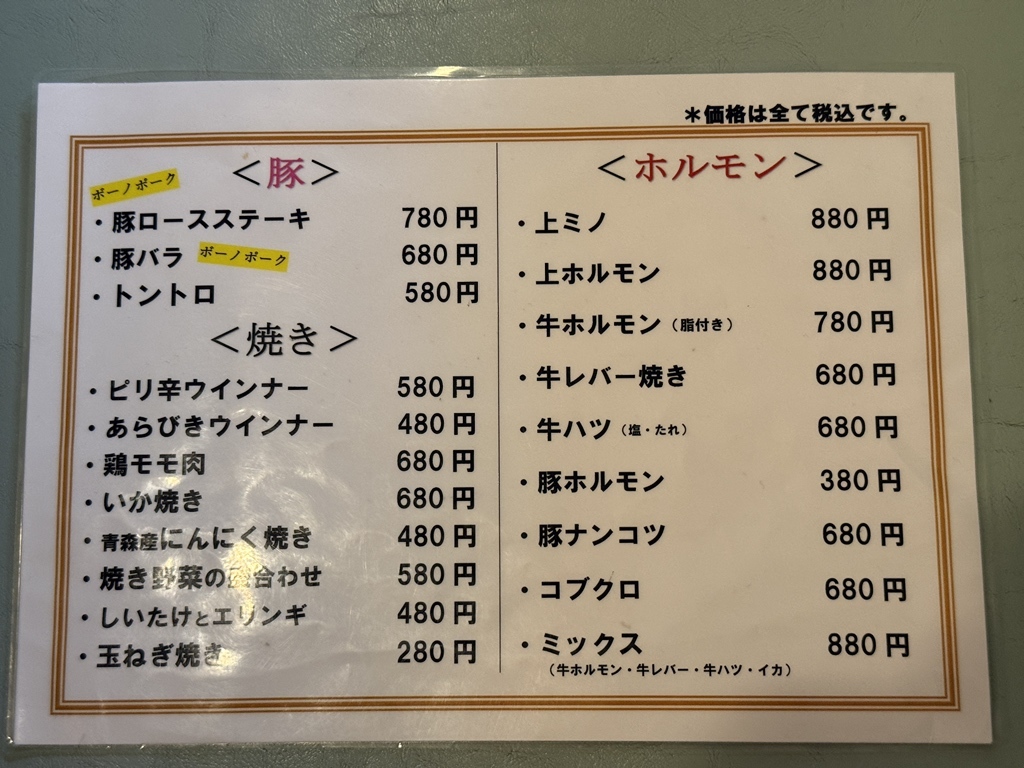 ＊価格は全て税込です。
＜豚＞
ボーノポーク
・豚ロースステーキ 780円
・豚バラ ボーノポーク 680円
・トントロ 580円
＜焼き＞
・ピリ辛ウインナー 580円
・あらびきウインナー 480円
・鶏モモ肉 680円
・いか焼き 680円
・青森産にんにく焼き 480円
・焼き野菜の盛合わせ 580円
・しいたけとエリンギ 480円
・玉ねぎ焼き 280円
＜ホルモン＞
・上ミノ 880円
・上ホルモン 880円
・牛ホルモン（脂付き） 780円
・牛レバー焼き 680円
・牛ハツ（塩・たれ） 680円
・豚ホルモン 380円
・豚ナンコツ 680円
・コブクロ 680円
・ミックス 880円
（牛ホルモン・牛レバー・牛ハツ・イカ）